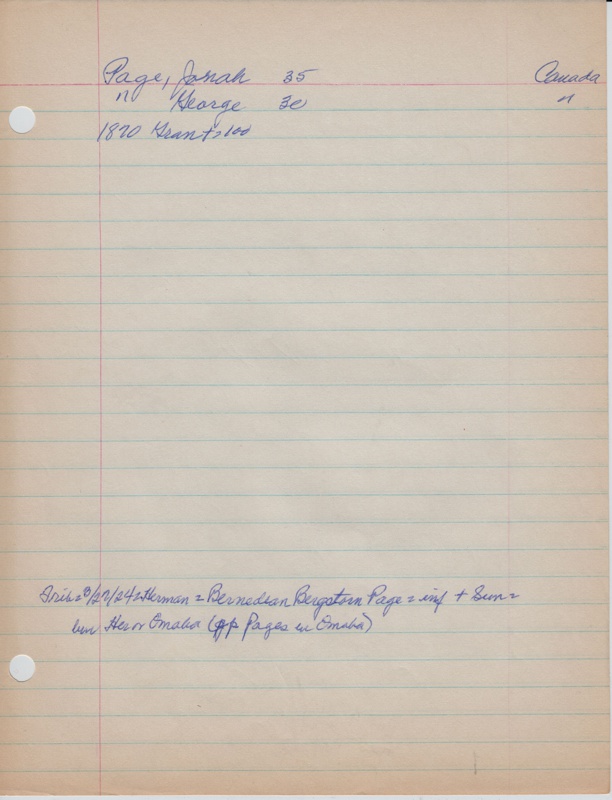 Page, Jonah 35 Canada
" George 30 "
1870 Grant = 100
Trib = 8/27/24 = Herman = Bergstorn Page = inf + Sun =
Omaha (Pages in Omaha)